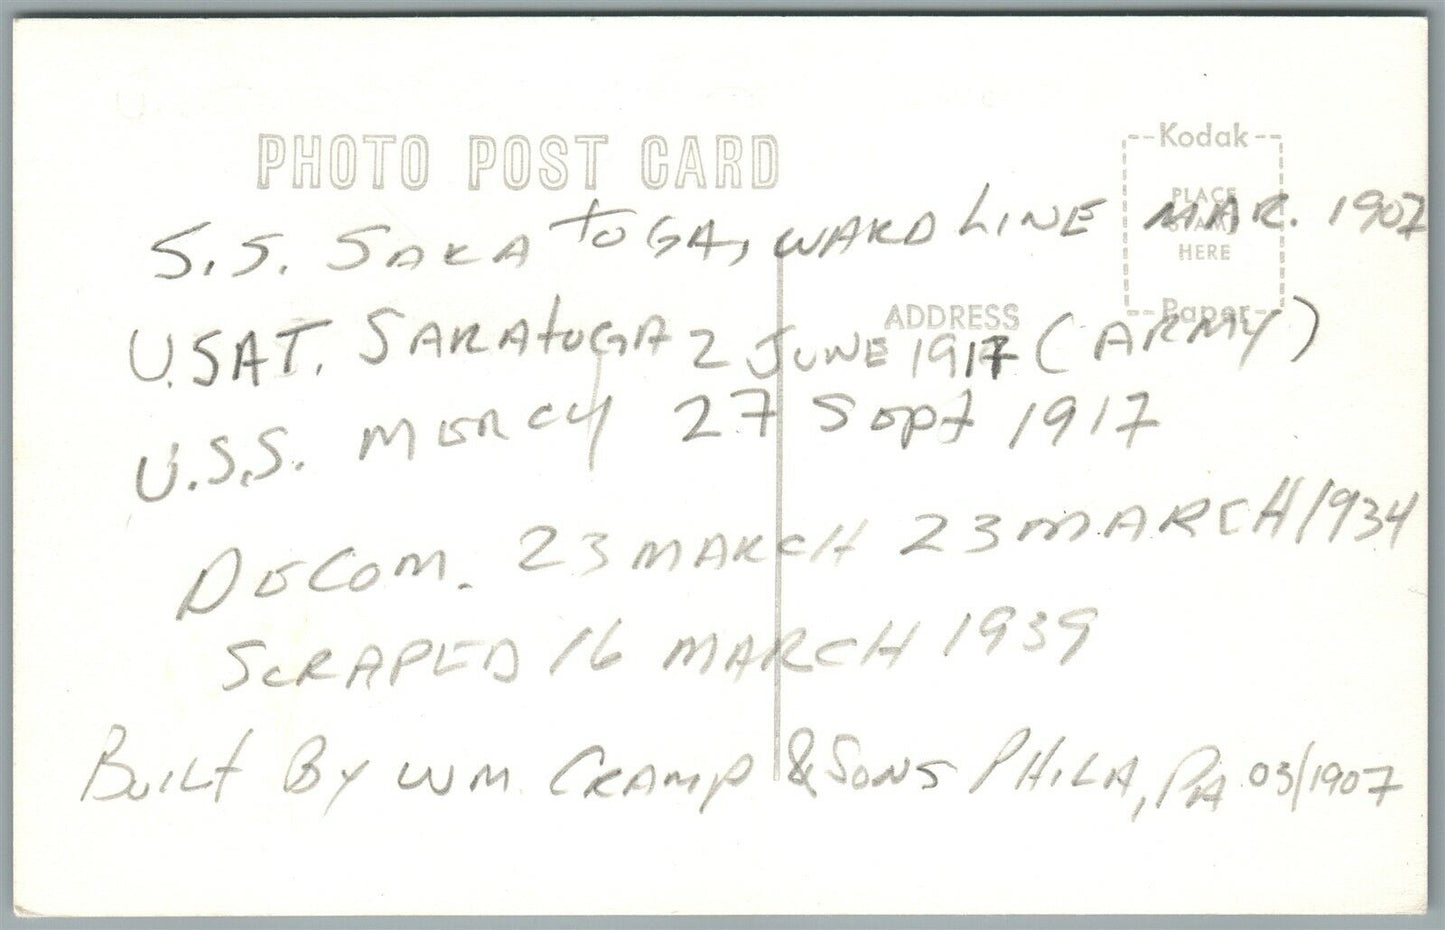 PHOTO POST CARD
--Kodak--
PLACE
STAMP
HERE
--Paper--
ADDRESS
S.S. SARAtoGA, WARD LINE MAR. 1907
U.SAT. SARAtoGA 2 JUNE 1917 (ARMY)
U.S.S. MERCY 27 Sept 1917
DECOM. 23 MARCH 23 MARCH 1934
SCRAPED 16 MARCH 1939
BuiLt By WM. CRAMP & SONS PHILA, PA 03/1907